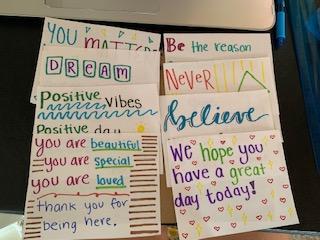 YOU MATTER
DREAM
Positive vibes
Positive day
you are beautiful
you are special
you are loved
thank you for
being here.
Be the reason
NeVeR
believe
We hope you
have a great
day today!